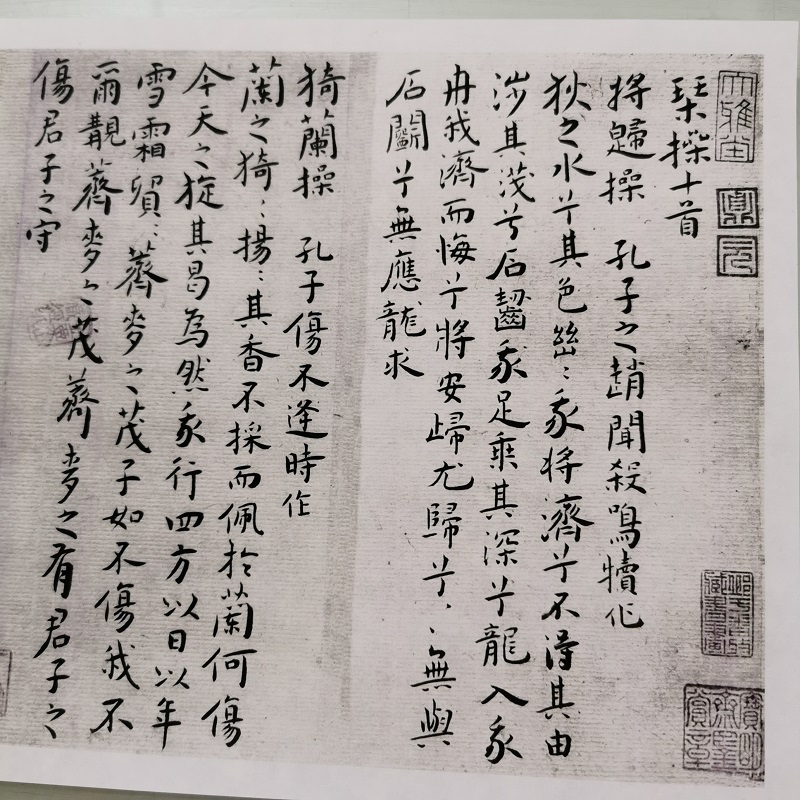 琹操十首
將歸操 孔子之趙聞殺鳴犢作
狄之水兮其色幽〻我將濟兮不得其由
涉其淺兮石齧我足乘其深兮龍入我
舟我濟而悔兮將安歸尤歸兮〻〻無與
石鬬兮無應龍求
猗蘭操 孔子傷不逢時作
蘭之猗〻揚〻其香不採而佩於蘭何傷
今天之旋其曷為然我行四方以日以年
雪霜貿〻薺麥之茂子如不傷我不
爾覯薺麥之茂薺麥之有君子之
傷君子之守